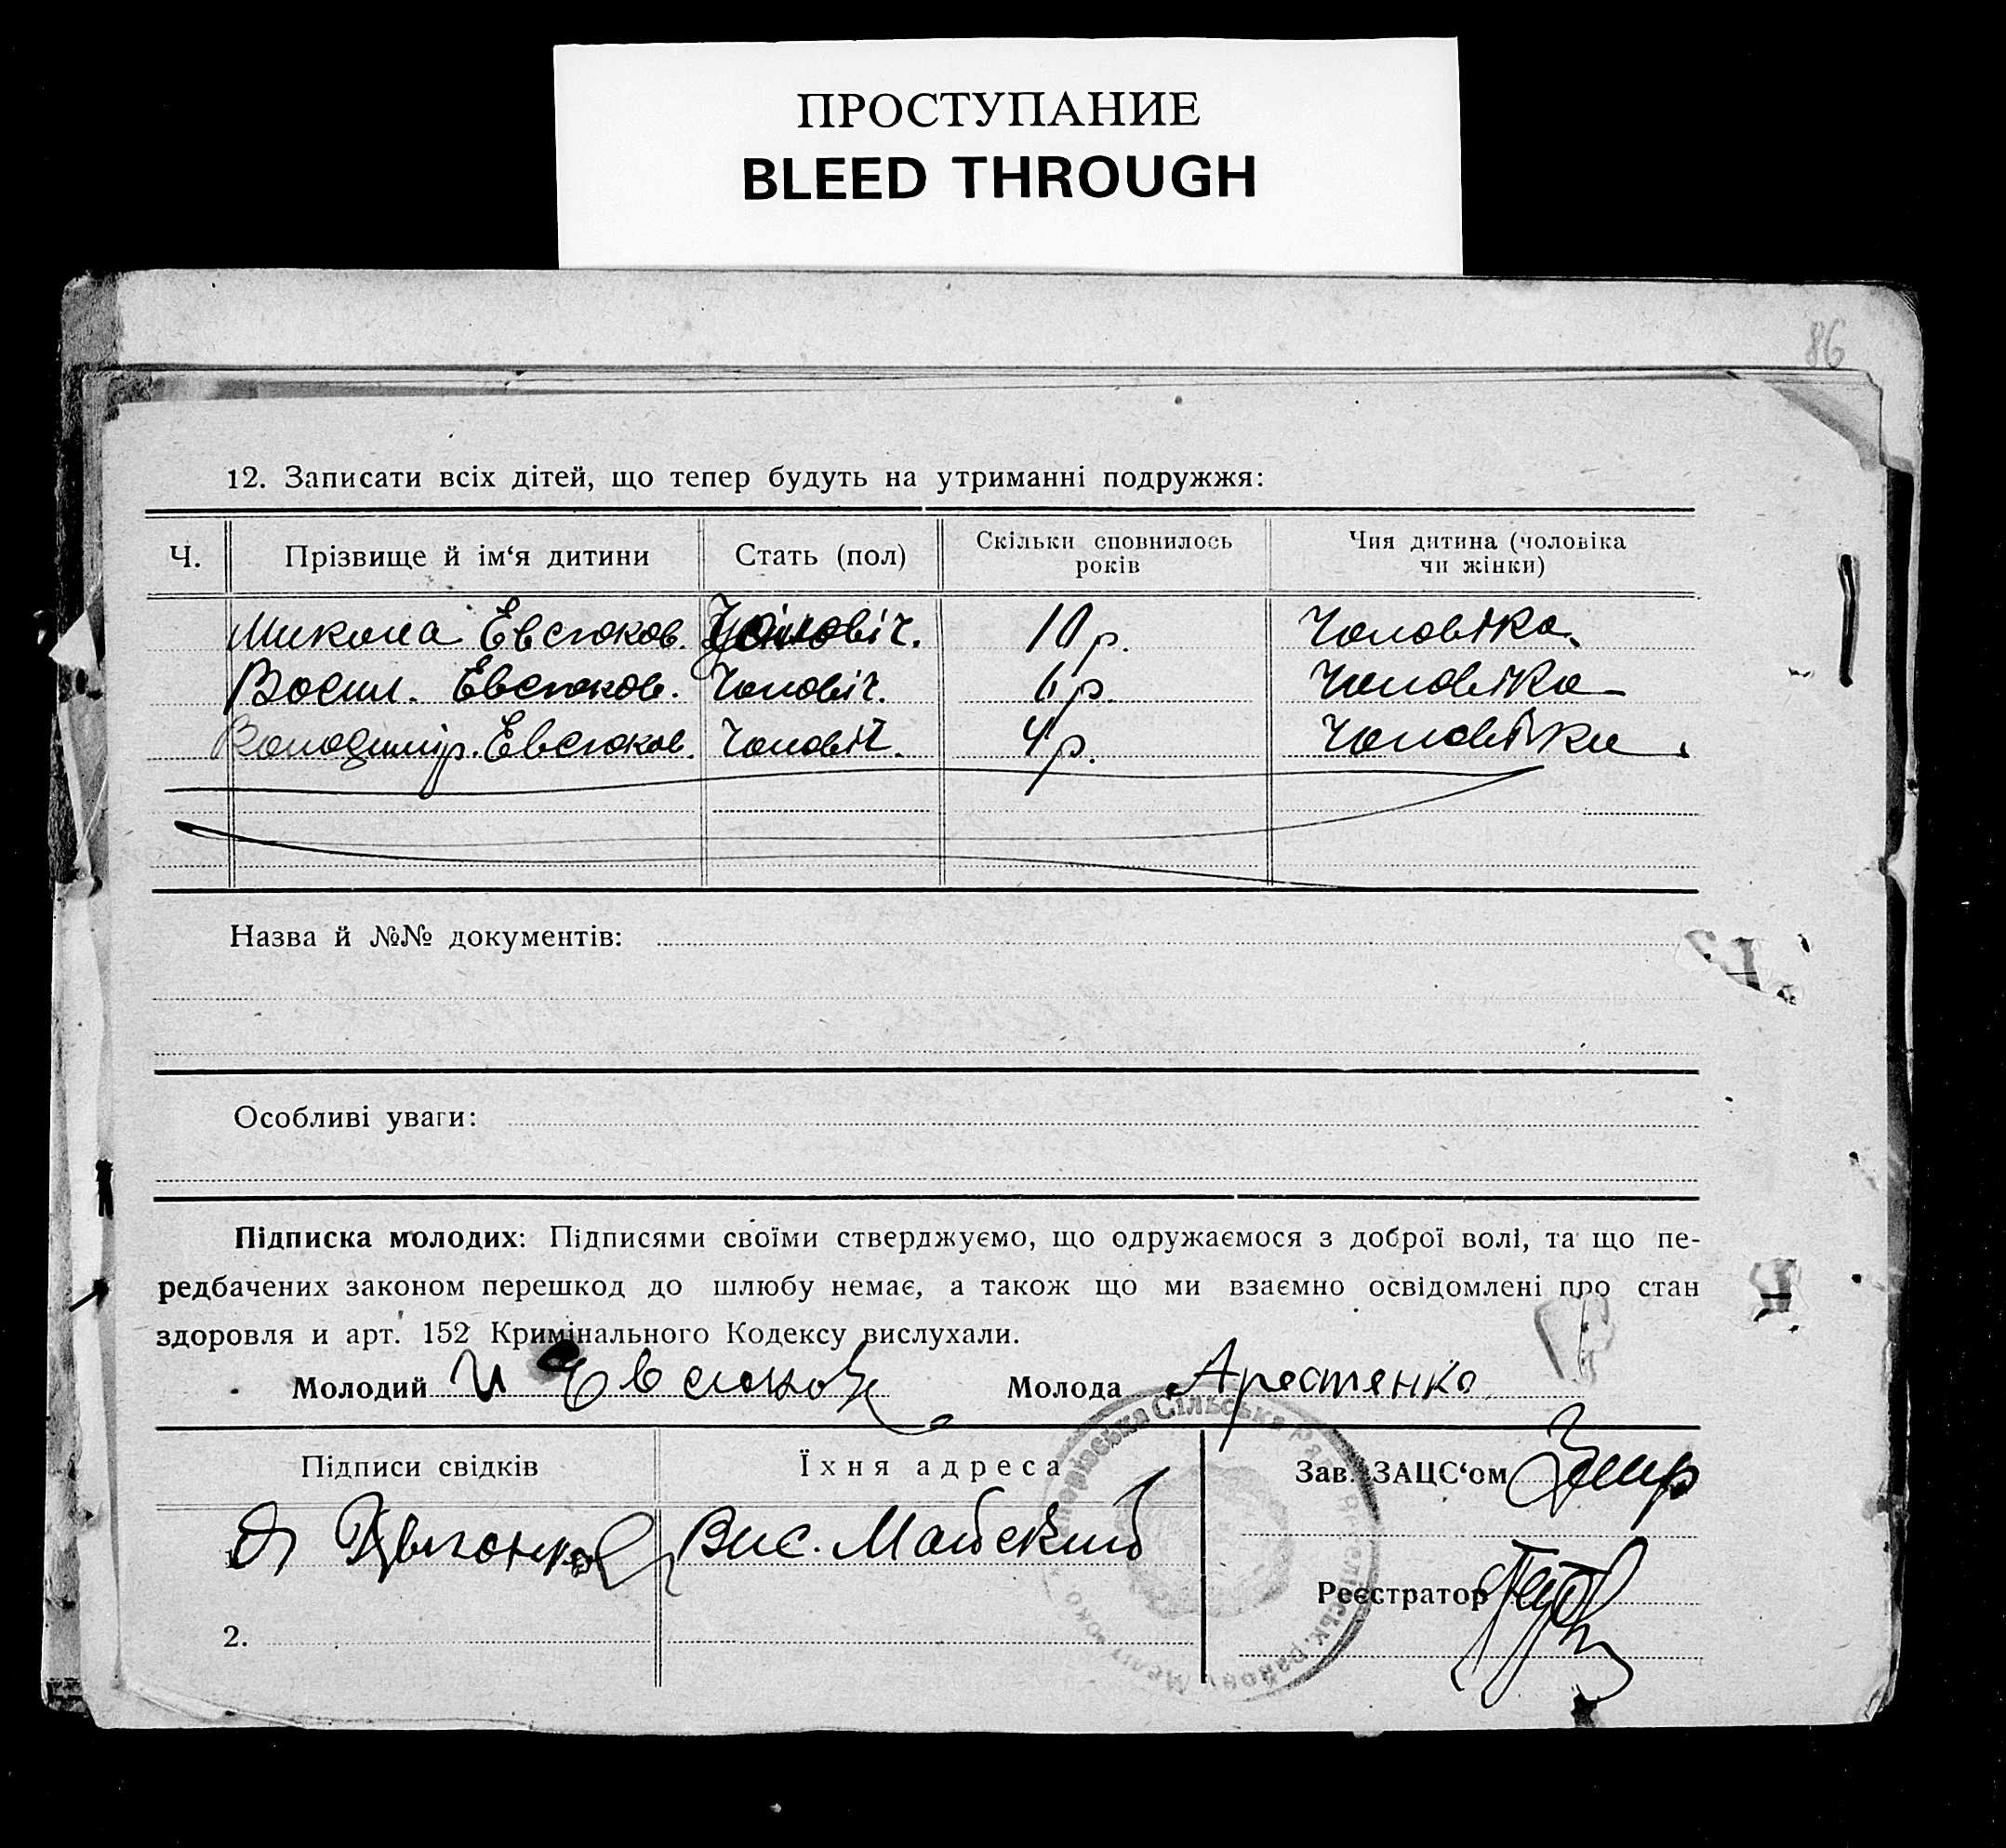 ПРОСТУПАНИЕ
BLEED THROUGH
86
12. Записати всіх дітей, що тепер будуть на утриманні подружжя:
Ч. Прізвище й ім‘я дитини Стать (пол) Скільки сповнилось років Чия дитина (чоловіка чи жінки)
Микола Евсюков. Чоловіч. 10 р. Чоловіка
Васил. Евсюков. Чоловіч. 6 р. Чоловіка
Володимір. Евсюков. Чоловіч. 4 р. Чоловіка
Назва й №№ документів:
Особливі уваги:
Підписка молодих: Підписями своїми стверджуємо, що одружаємося з доброї волі, та що пе-
редбачених законом перешкод до шлюбу немає, а також що ми взаємно освідомлені про стан
здоровля и арт. 152 Кримінального Кодексу вислухали.
Молодий И Евсюков Молода Арестенко
Підписи свідків Їхня адреса Зав. ЗАЦС‘ом
Вис. Майский
Реєстратор
2.
Сільська